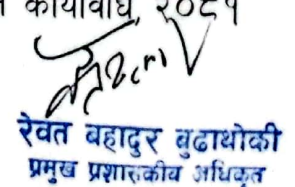 कार्यविधि, २०८१
रेवत बहादुर बुढाथोकी
प्रमुख प्रशासकीय अधिकृत